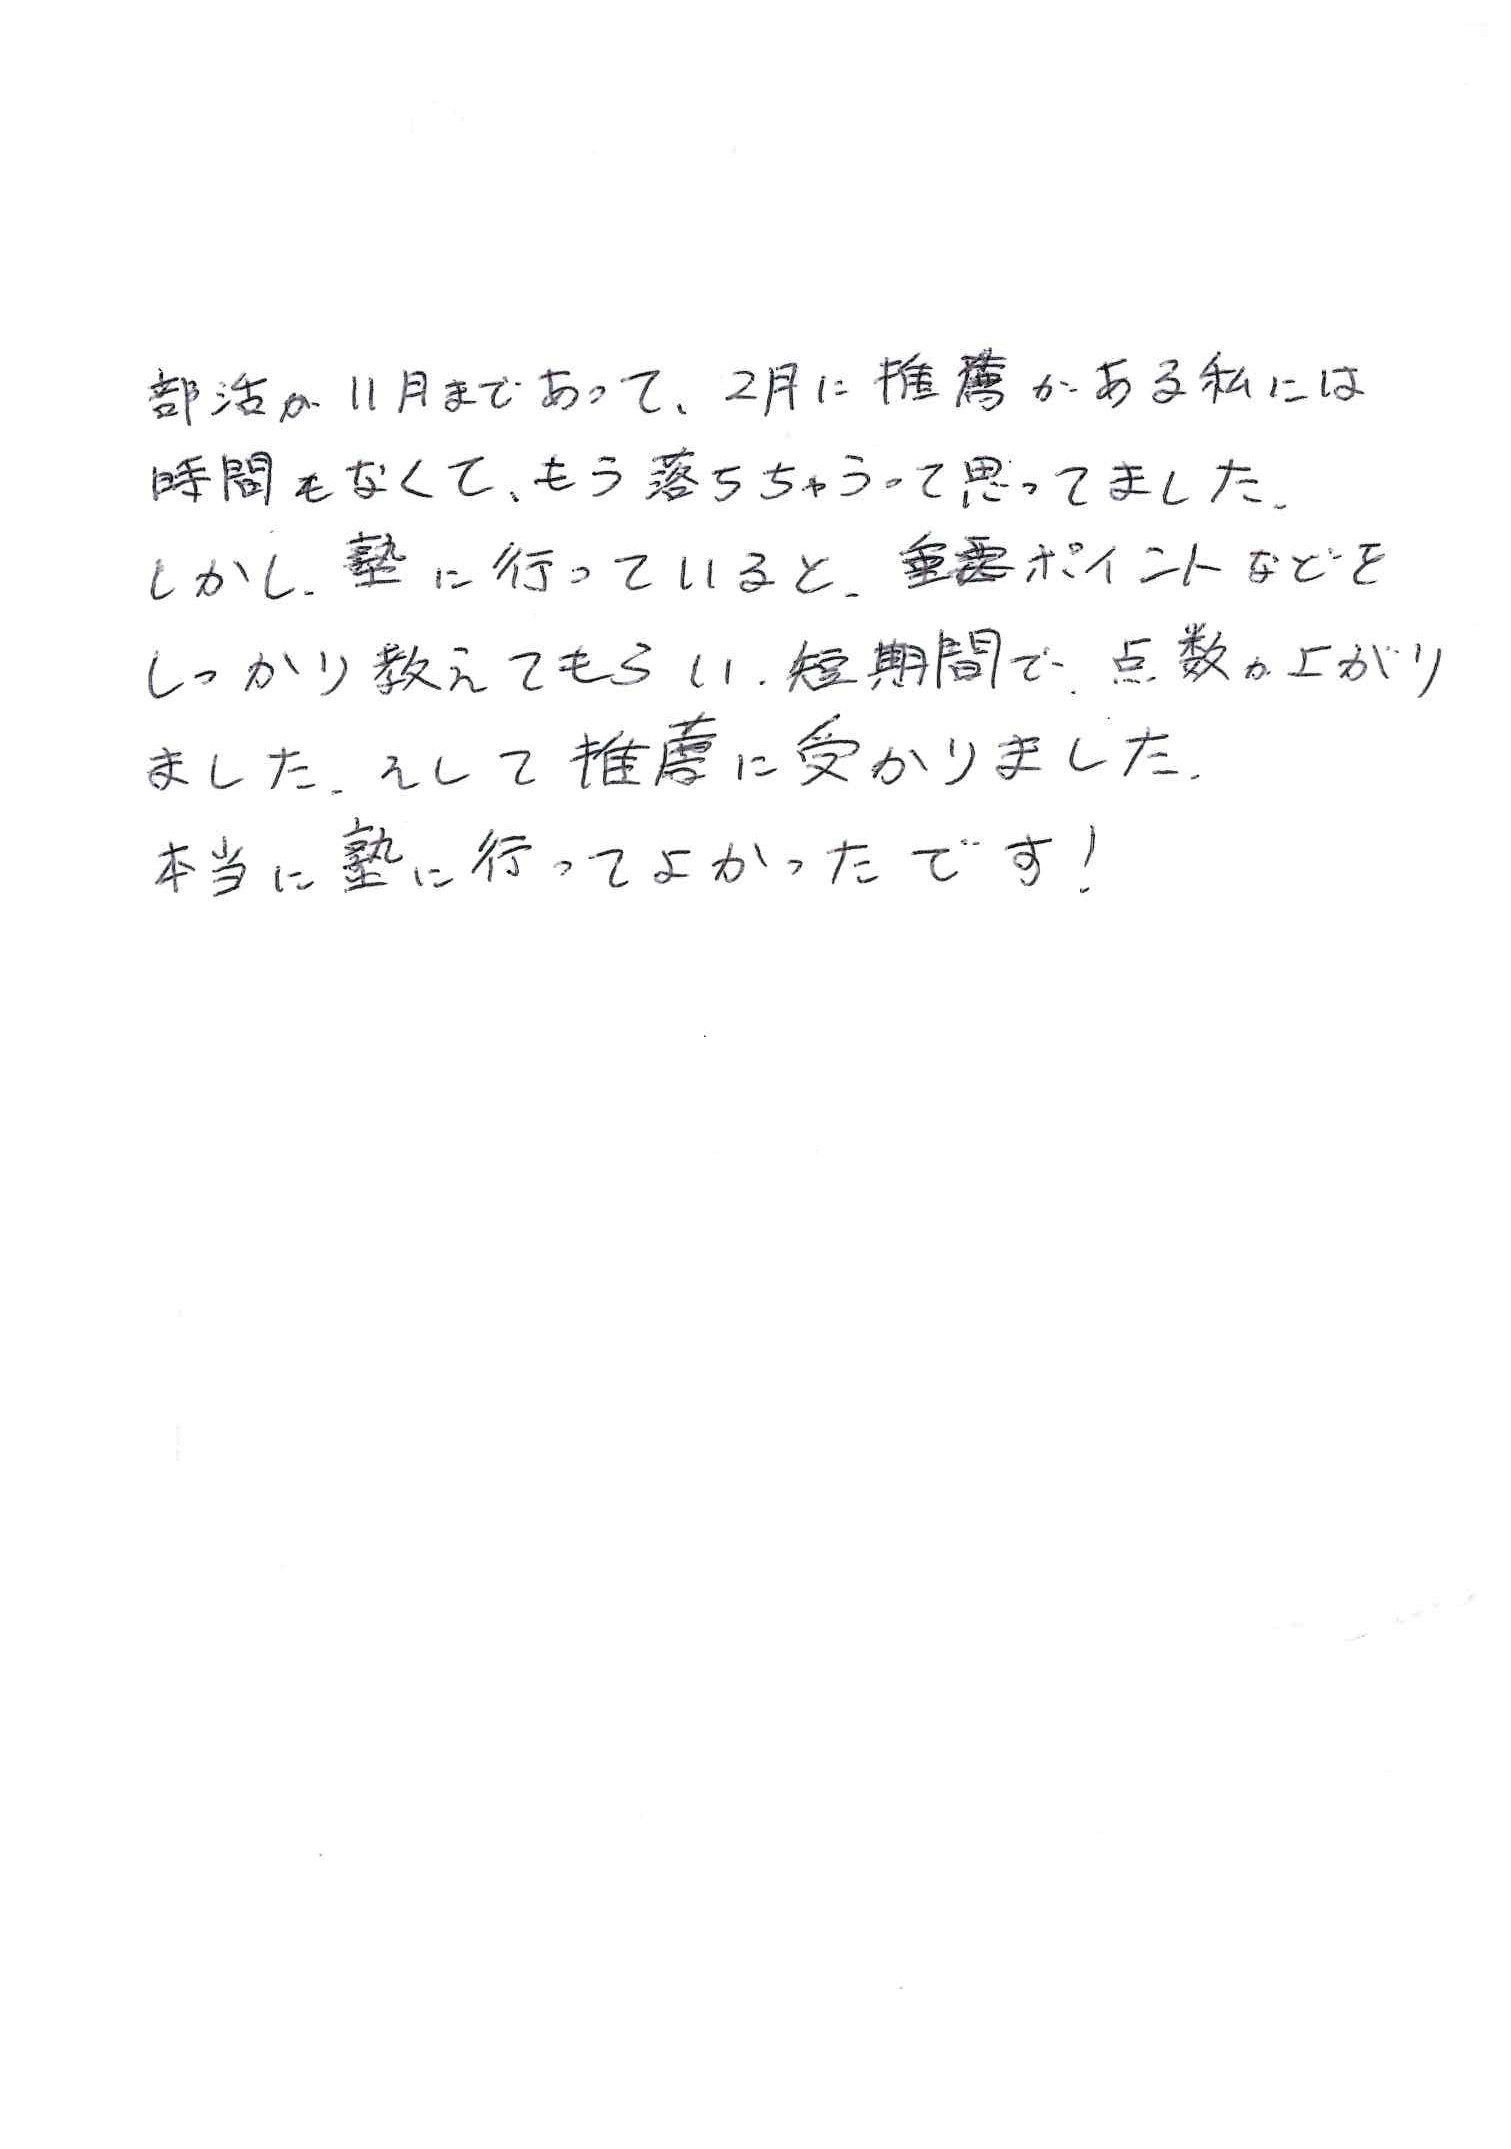 部活が11月まであって、2月に推薦がある私には
時間もなくて、もう落ちちゃうって思ってました。
しかし、塾に行っていると、重要ポイントなどを
しっかり教えてもらい、短期間で、点数が上がり
ました。そして推薦に受かりました。
本当に塾に行ってよかったです!